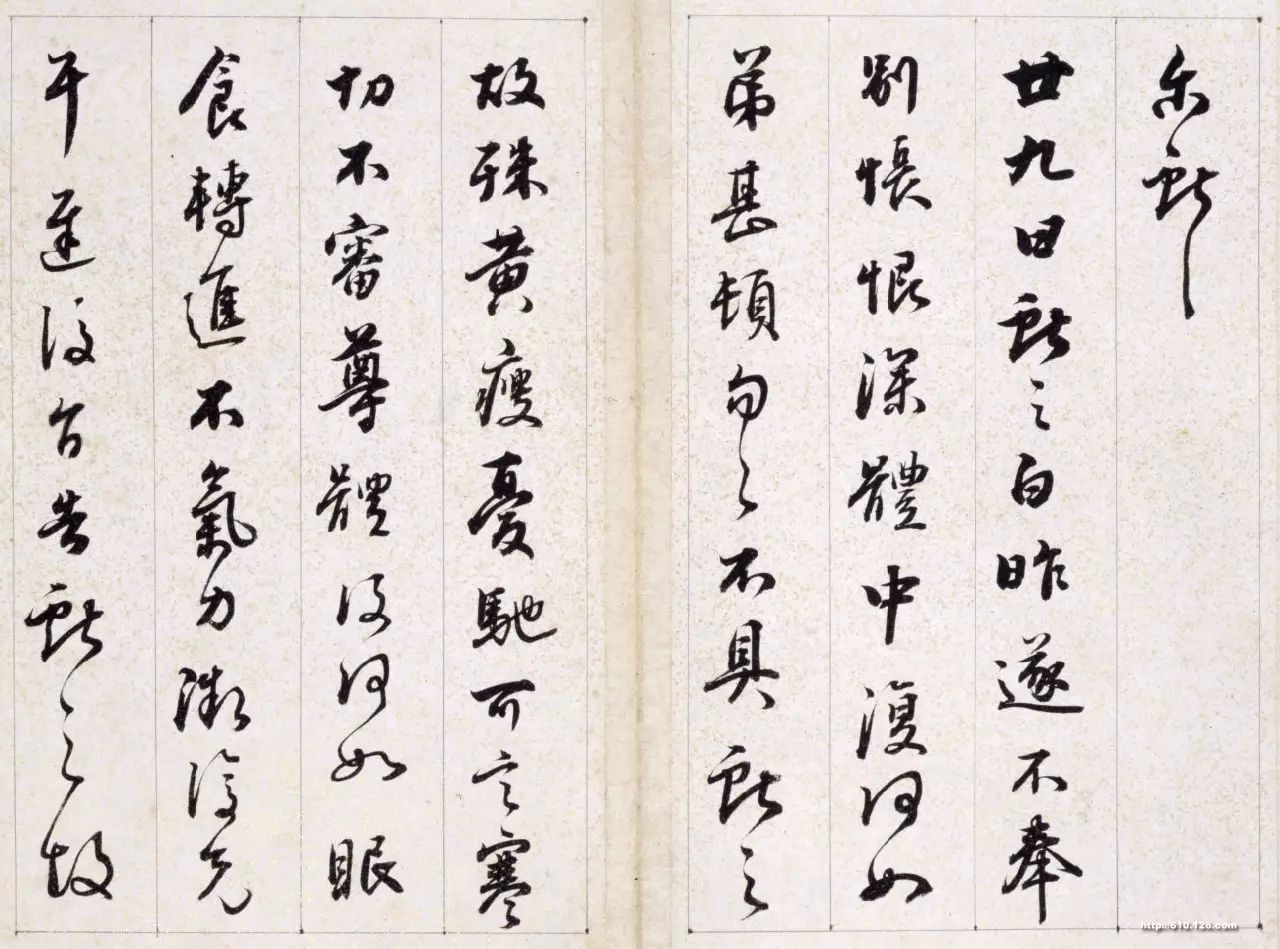 尔獻之
廿九日獻之白昨遂不奉
别悵恨深體中復何如
弟甚頓匆匆不具獻之
故殊黄瘦憂馳可言寒
切不審尊體復何如眼
食轉進不氣力漸復先
耳遲復告獻之故
http://610.126.com